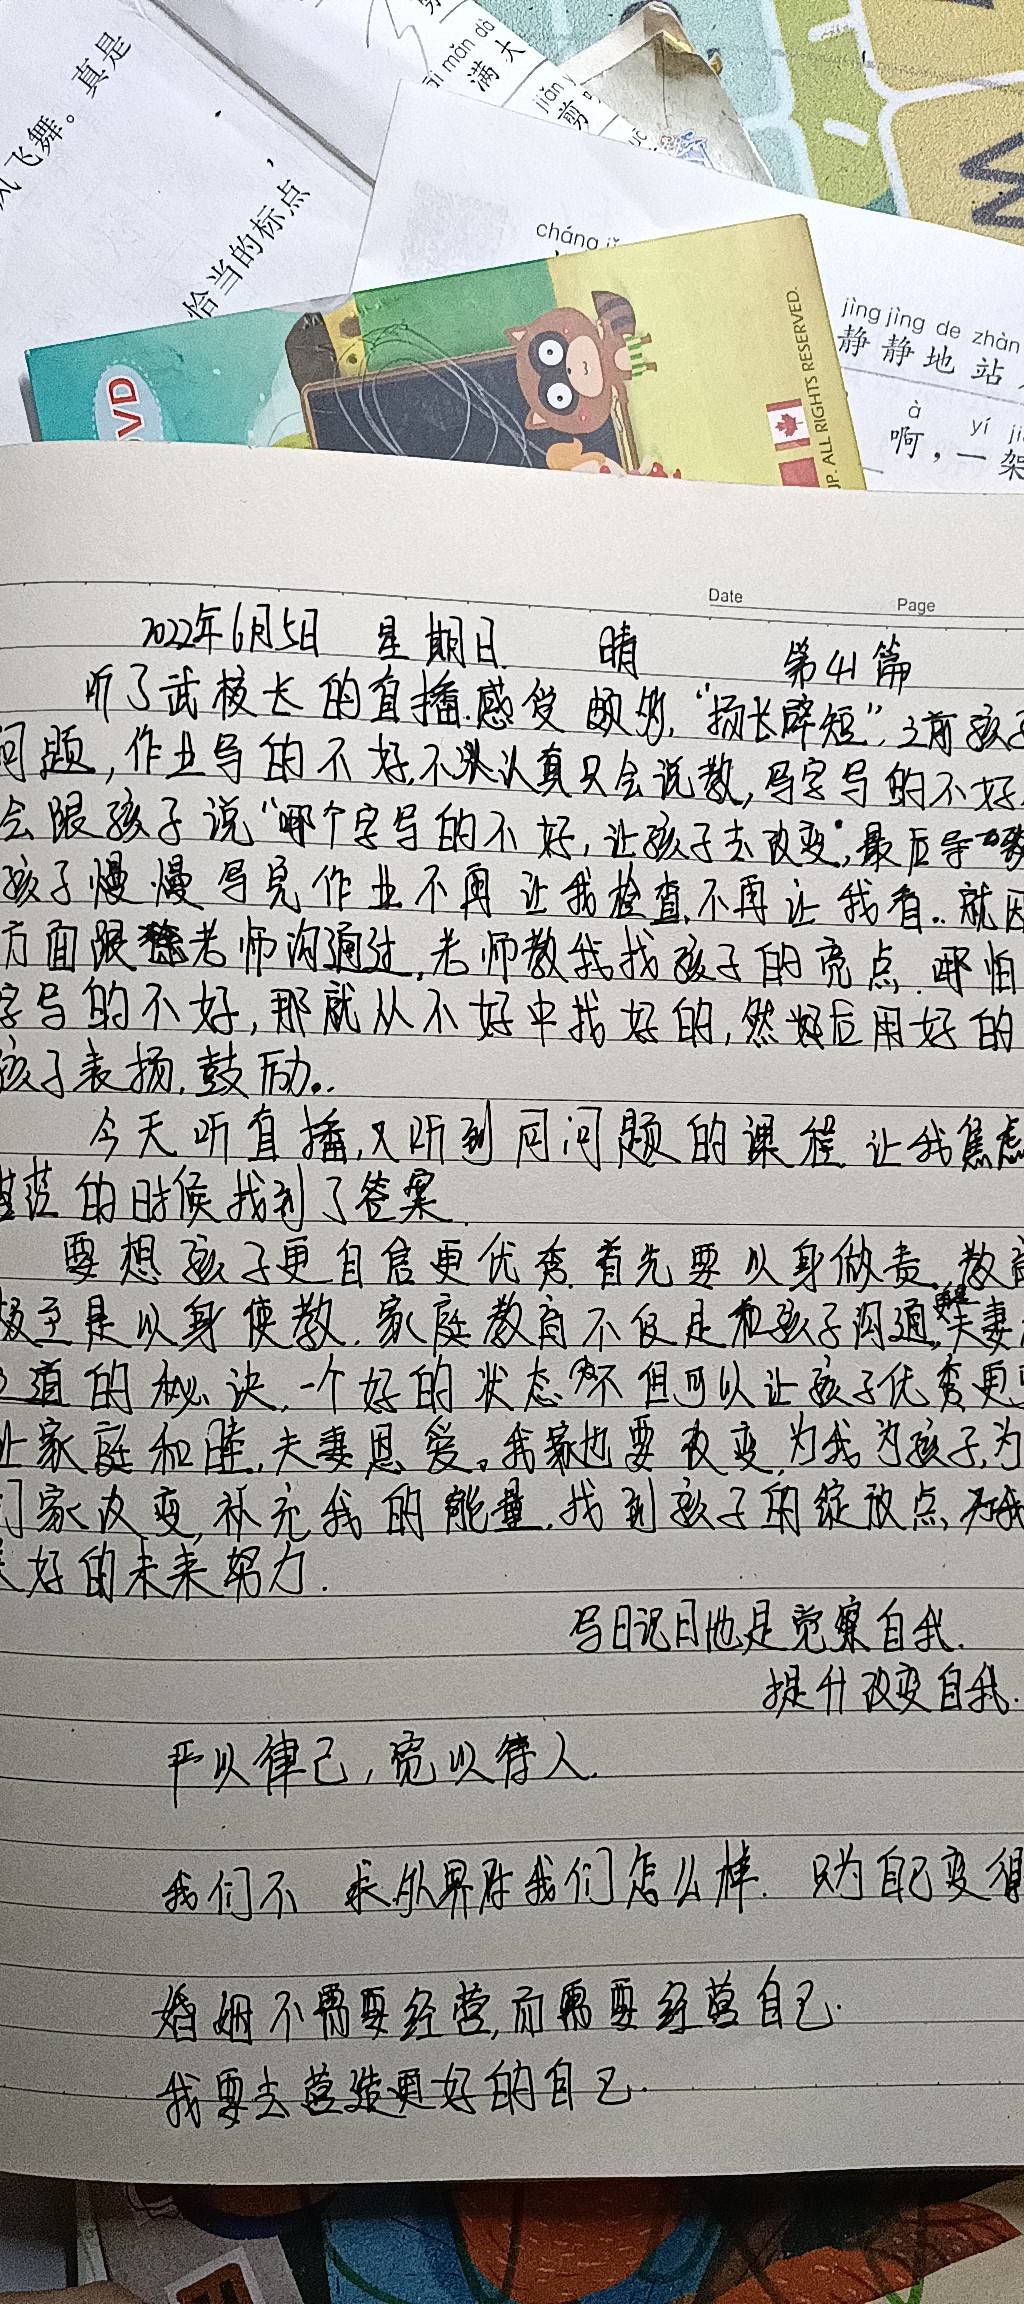 飞舞。真是
,
恰当的标点
mǎn dà
满大
jiǎn
剪
cháng
jìng jìng de zhàn
静静地站
à yí
啊，一架
DVD
ALL RIGHTS RESERVED.
Date
Page
2022年6月5日 星期日 晴 第41篇
听了武校长的直播.感受颇多,“扬长辟短”,之前孩子
问题,作业写的不好,不认真只会说教,写字写的不好
会跟孩子说“哪个字写的不好,让孩子去改变”,最后导致
孩子慢慢写完作业不再让我检查,不再让我看..就因
方面跟老师沟通过,老师教我找孩子的亮点.哪怕
字写的不好,那就从不好中找好的,然后用好的
孩子表扬,鼓励..
今天听直播,又听到同问题的课程让我焦虑
的时候找到了答案.
要想孩子更自信更优秀.首先要以身做责.教育
极至是以身使教.家庭教育不仅是和孩子沟通,更是夫妻
之道的秘诀,一个好的状态不但可以让孩子优秀更
让家庭和睦,夫妻恩爱。我家也要改变,为我为孩子,为
们家改变,补充我的能量.找到孩子的绽放点,为我
美好的未来努力.
写日记日也是觉察自我.
提升改变自我.
严以律己,宽以待人.
我们不求外界对我们怎么样.只为自己变得
婚姻不需要经营,而需要经营自己.
我要去营造更好的自己.